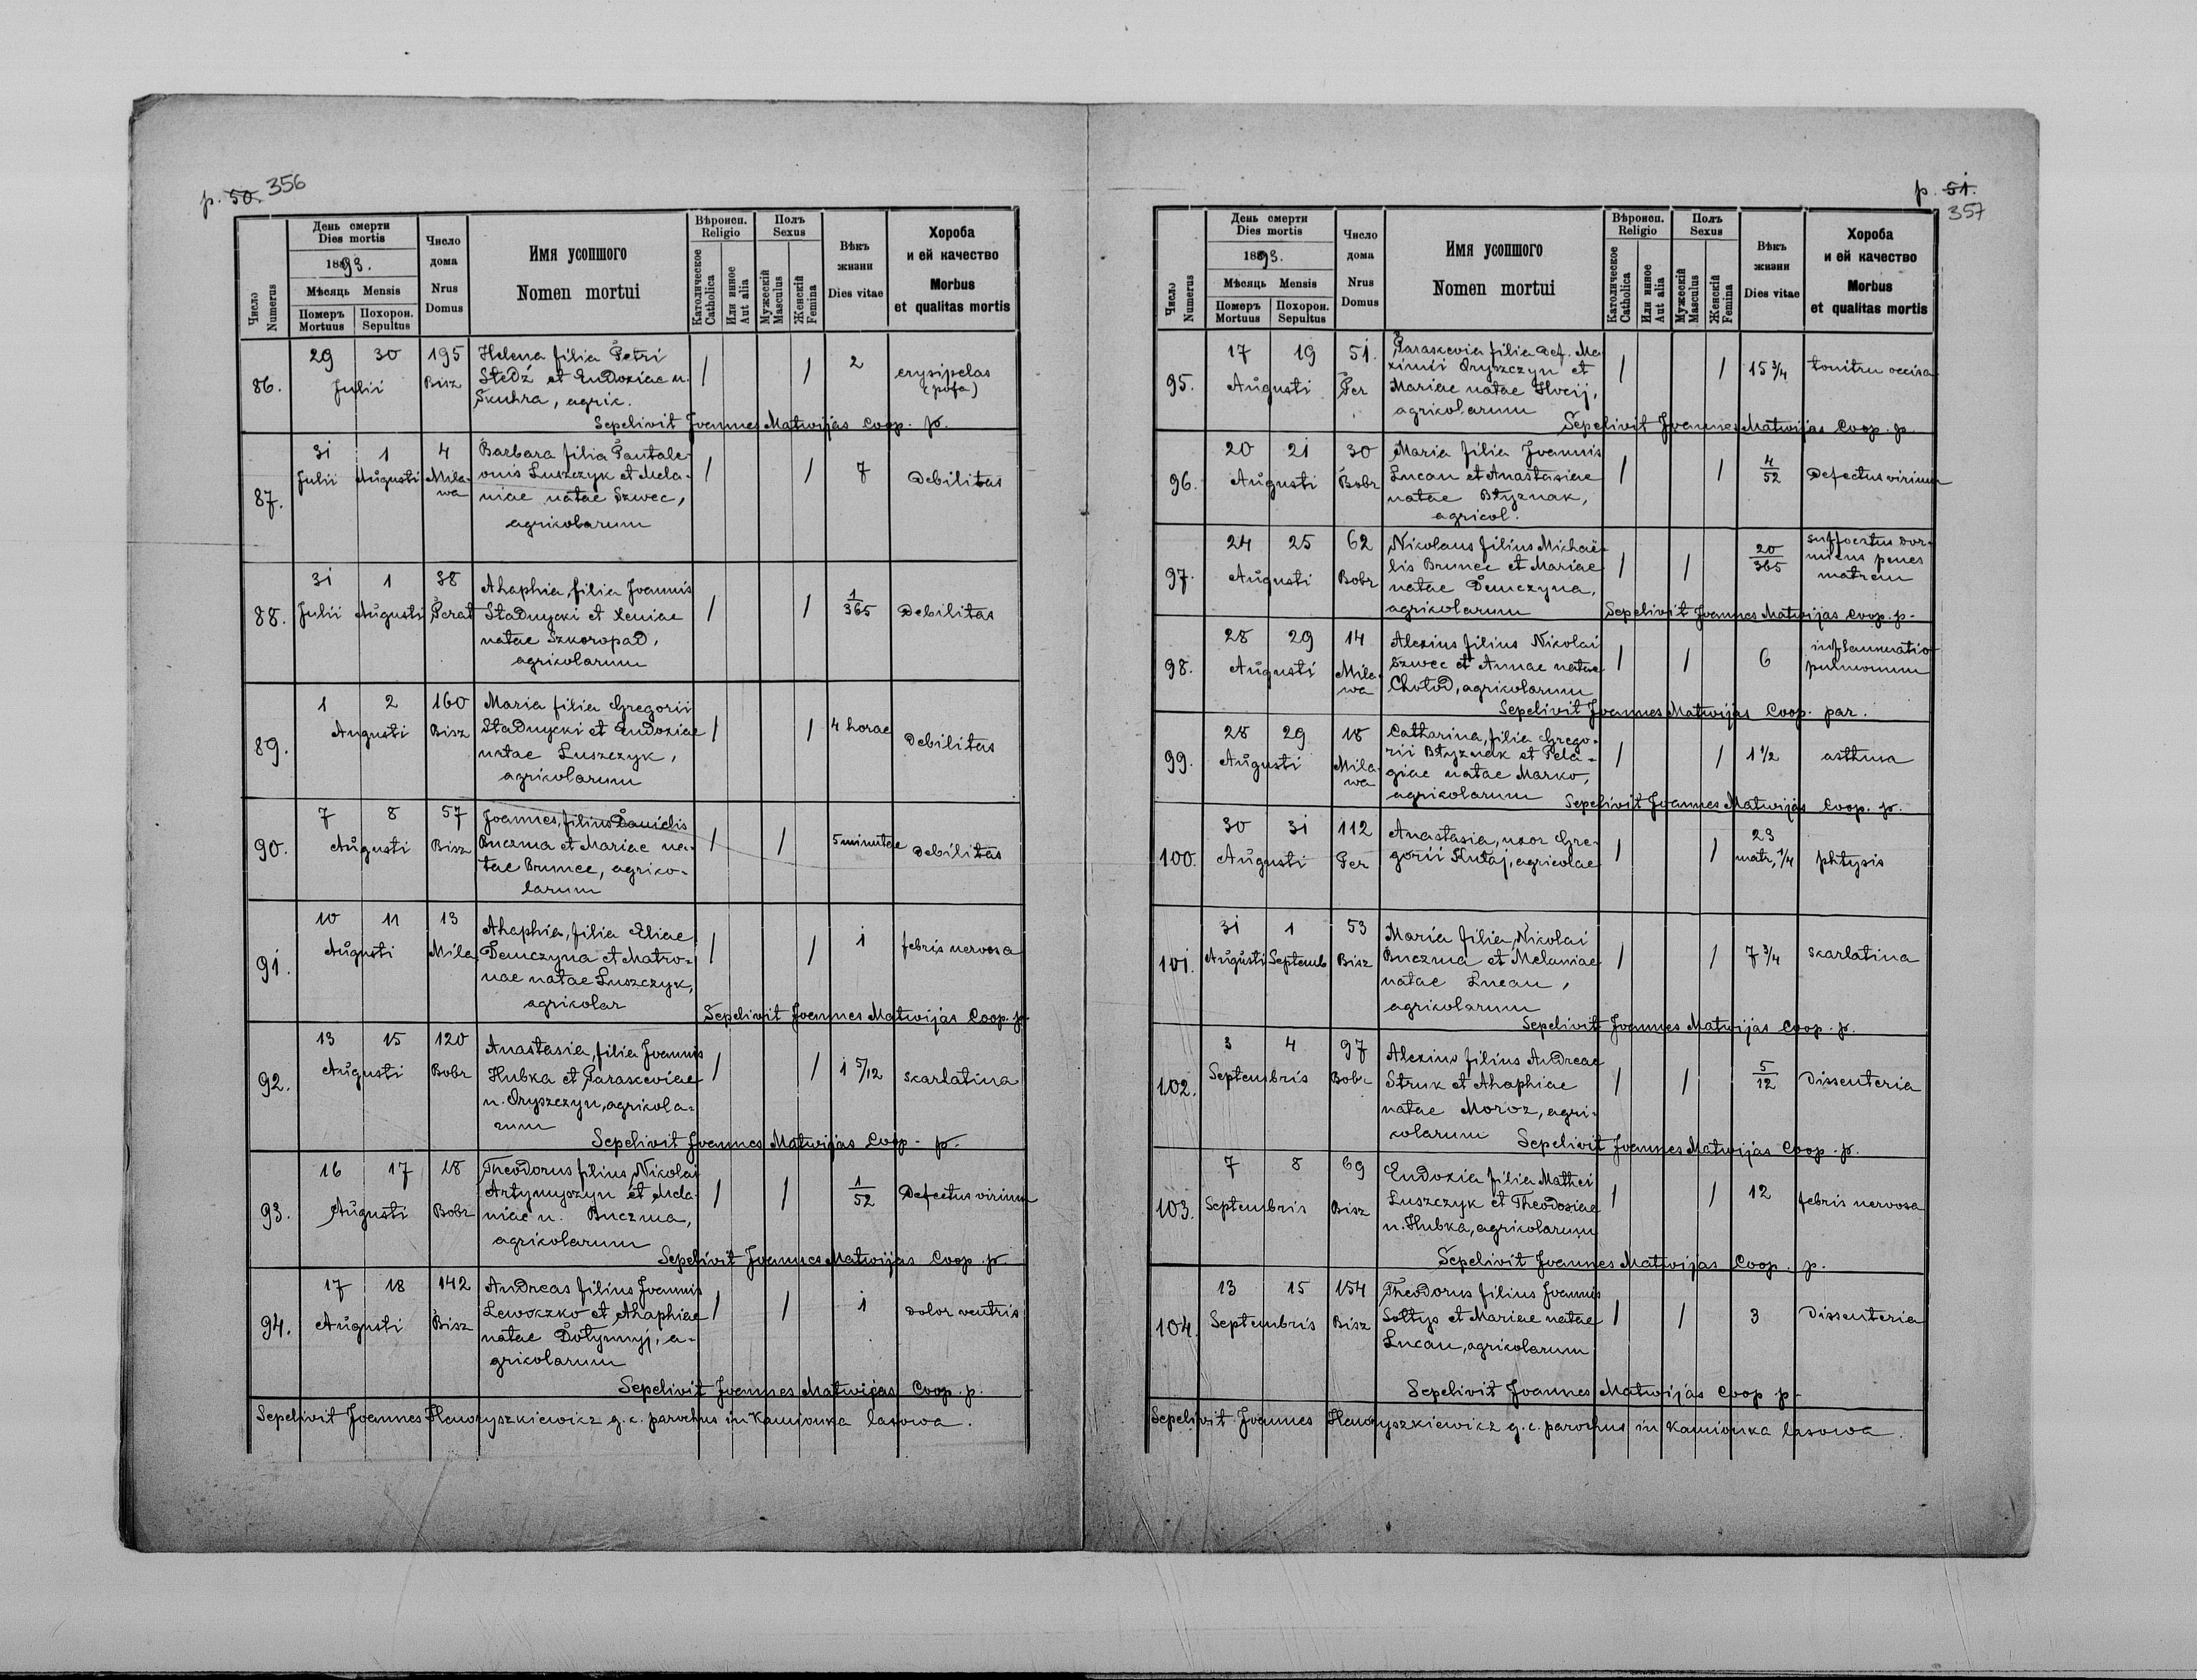 p. 50. 356
Число Numerus
День смерти
Dies mortis
1893.
Мѣсяць Mensis
Померъ Mortuus
Похорон. Sepultus
Число дома
Nrus Domus
Имя усопшого
Nomen mortui
Вѣроисп. Religio
Католическое Catholica
Или инное Aut alia
Полъ Sexus
Мужескій Masculus
Женскій Femina
Вѣкъ жизни
Dies vitae
Хороба
и ей качество
Morbus
et qualitas mortis
86. 29 30 Julii 195 Bisz
Helena filia Petri
Stedź et Eudoxiae n.
Skuhra, agric.
/ / 2 erysipelas
Sepelivit Joannes Matwijas Coop. p.
87. 31 Julii 1 Augusti 4 Milawa
Barbara filia Pantale-
onis Luszczyk et Mela-
niae natae Szwec,
agricolarum
/ / 7 Debilitas
88. 31 Julii 1 Augusti 38 Perat
Ahaphia, filia Joannis
Stadnycki et Xeniae
natae Szkoropad,
agricolarum
/ / 1/365 Debilitas
89. 1 2 Augusti 160 Bisz
Maria filia Gregorii
Stadnycki et Eudoxiae
natae Luszczyk,
agricolarum
/ / 4 horae Debilitas
90. 7 8 Augusti 57 Bisz
Joannes, filius Danielis
Buczma et Mariae na-
tae Brunec, agrico-
larum
/ / 5 minutae Debilitas
91. 10 11 Augusti 13 Mila
Ahaphia, filia Eliae
Demczyna et Matro-
nae natae Luszczyk,
agricolar
/ / 1 febris nervosa
Sepelivit Joannes Matwijas Coop. p.
92. 13 15 Augusti 120 Bobr
Anastasia, filia Joannis
Hubka et Parasceviae
n. Oryszczyn, agricola-
rum
/ / 1 5/12 scarlatina
Sepelivit Joannes Matwijas Coop. p.
93. 16 17 Augusti 18 Bobr
Theodorus filius Nikolai
Artymyszyn et Mela-
niae n. Buczma,
agricolarum
/ / 1/52 Defectus virium
Sepelivit Joannes Matwijas Coop. p.
94. 17 18 Augusti 142 Bisz
Andreas filius Joannis
Lewoczko et Ahaphiae
natae Dołynnyj, a-
gricolarum
/ / 1 dolor ventris
Sepelivit Joannes Matwijas Coop. p.
Sepelivit Joannes Hawryszkiewicz g. c. parochus in Kamionka lasowa.
p. 51.
357
Число Numerus
День смерти
Dies mortis
1893.
Мѣсяць Mensis
Померъ Mortuus
Похорон. Sepultus
Число дома
Nrus Domus
Имя усопшого
Nomen mortui
Вѣроисп. Religio
Католическое Catholica
Или инное Aut alia
Полъ Sexus
Мужескій Masculus
Женскій Femina
Вѣкъ жизни
Dies vitae
Хороба
и ей качество
Morbus
et qualitas mortis
95. 17 19 Augusti 51. Per
Parascevia filia def. Ma-
ximii Oryszczyn et
Mariae natae Hvcij,
agricolarum
/ / 15 3/4 tonitru occisa
Sepelivit Joannes Matwijas Coop. p.
96. 20 21 Augusti 30 Bobr
Maria filia Joannis
Lucan et Anastasiae
natae Błyznak,
agricol.
/ / 4/52 Defectus virium
97. 24 25 Augusti 62 Bobr
Nikolaus filius Michaë-
lis Brunec et Mariae
natae Demczyna,
agricolarum
/ / 20/365 suffocatus dor-
miens penes
matrem
Sepelivit Joannes Matwijas Coop. p.
98. 28 29 Augusti 14 Milawa
Alexius filius Nikolai
Szwec et Annae natae
Chołod, agricolarum
/ / 6 inflammatio
pulmonum
Sepelivit Joannes Matwijas Coop. par.
99. 28 29 Augusti 18 Milawa
Catharina, filia Grego-
rii Błyznak et Pela-
giae natae Marko,
agricolarum
/ / 1 1/2 asthma
Sepelivit Joannes Matwijas Coop. p.
100. 30 31 Augusti 112 Per
Anastasia, uxor Gre-
gorii Hutaj, agricolae
/ / 23 matr, 1/4 phtysis
101. 31 Augusti 1 Septemb 53 Bisz
Maria filia Nikolai
Buczma et Melaniae
natae Lucan,
agricolarum
/ / 7 3/4 scarlatina
Sepelivit Joannes Matwijas Coop. p.
102. 3 4 Septembris 97 Bobr
Alexius filius Andreae
Struk et Ahaphiae
natae Moroz, agri-
colarum
/ / 5/12 Dissenteria
Sepelivit Joannes Matwijas Coop. p.
103. 7 8 Septembris 69 Bisz
Eudoxia filia Mathei
Luszczyk et Theodosiae
n. Hubka, agricolarum
/ / 12 febris nervosa
Sepelivit Joannes Matwijas Coop. p.
104. 13 15 Septembris 154 Bisz
Theodorus filius Joannis
Sołtys et Mariae natae
Lucan, agricolarum
/ / 3 Dissenteria
Sepelivit Joannes Matwijas Coop p.
Sepelivit Joannes Hawryszkiewicz g. c. parochus in Kamionka lasowa.